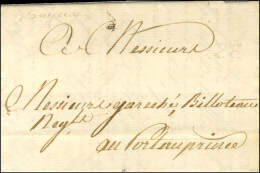 A Messieurs
Messieurs Garesché, Billoteau
Neg.ts
au Portauprince